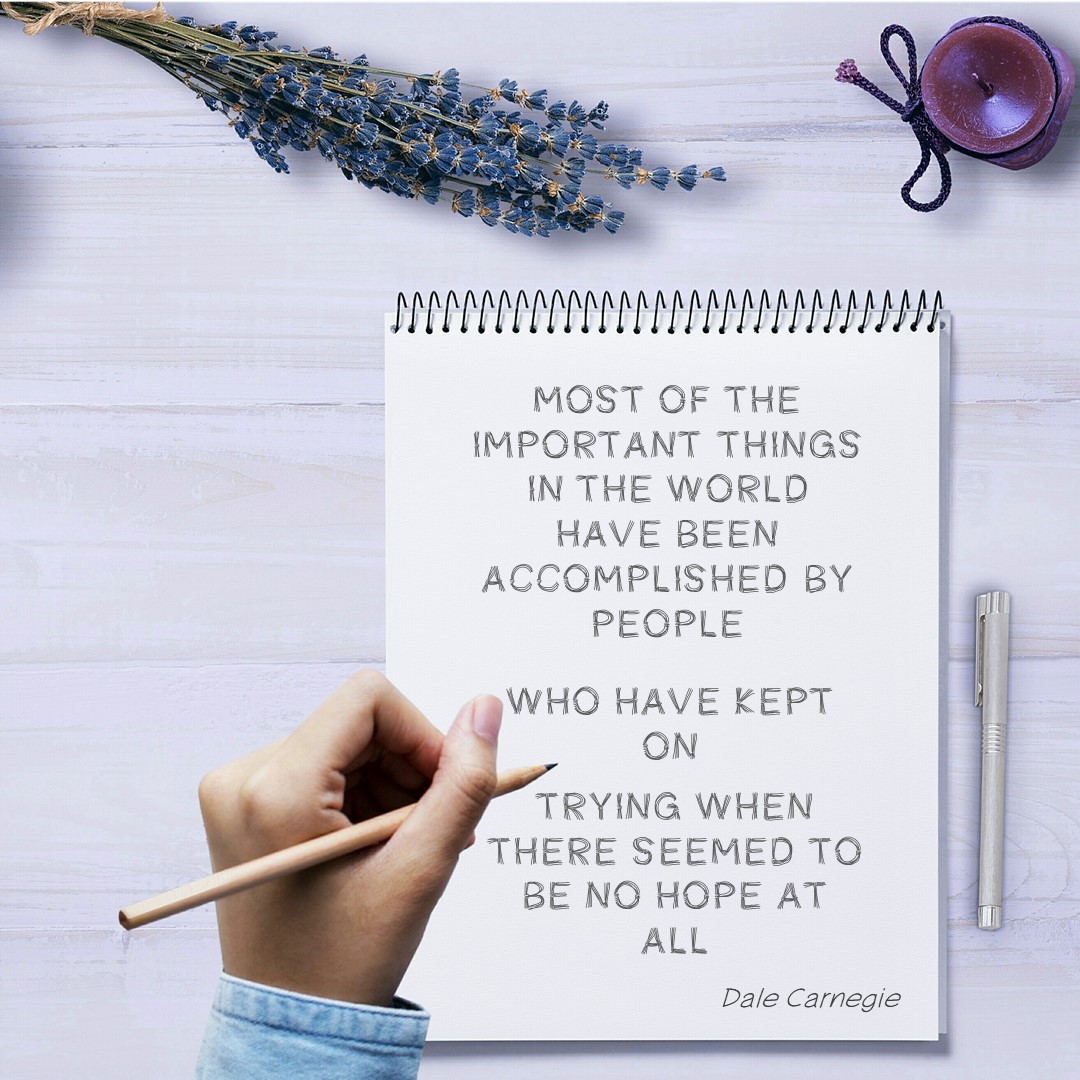 MOST OF THE
IMPORTANT THINGS
IN THE WORLD
HAVE BEEN
ACCOMPLISHED BY
PEOPLE
WHO HAVE KEPT
ON
TRYING WHEN
THERE SEEMED TO
BE NO HOPE AT
ALL
Dale Carnegie